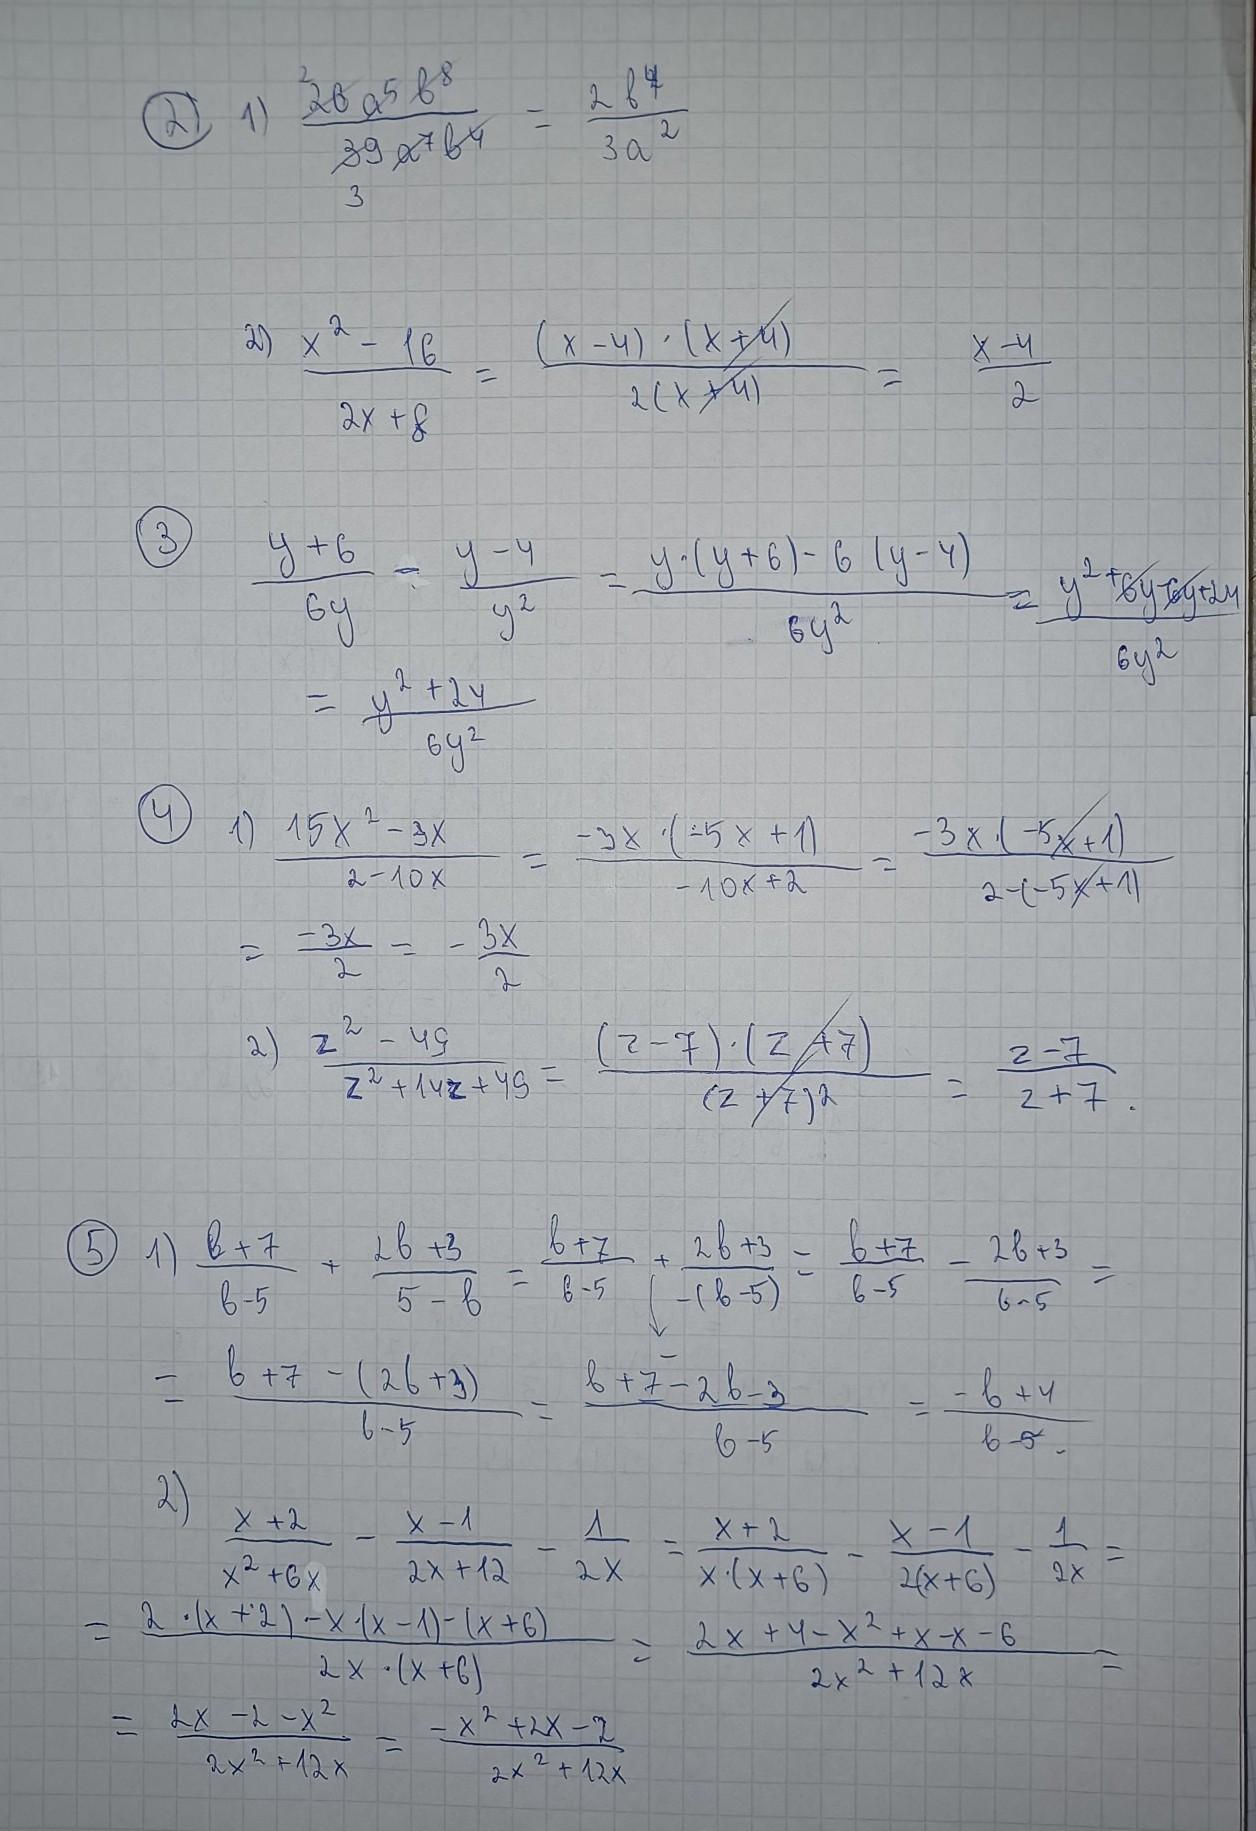 ② 1) 26a⁵b⁸/39a⁷b⁴ = 2b⁴/3a²
2
3
2) (x² - 16)/(2x + 8) = ((x - 4) · (x + 4))/(2(x + 4)) = (x - 4)/2
③ (y + 6)/(6y) - (y - 4)/y² = (y·(y + 6) - 6(y - 4))/(6y²) = (y² + 6y - 6y + 24)/(6y²)
= (y² + 24)/(6y²)
④ 1) (15x² - 3x)/(2 - 10x) = (-3x · (-5x + 1))/(-10x + 2) = (-3x · (-5x + 1))/(2·(-5x + 1))
= (-3x)/2 = - 3x/2
2) (z² - 49)/(z² + 14z + 49) = ((z - 7) · (z + 7))/((z + 7)²) = (z - 7)/(z + 7).
⑤ 1) (b + 7)/(b - 5) + (2b + 3)/(5 - b) = (b + 7)/(b - 5) + (2b + 3)/(-(b - 5)) = (b + 7)/(b - 5) - (2b + 3)/(b - 5) =
↓ -
= (b + 7 - (2b + 3))/(b - 5) = (b + 7 - 2b - 3)/(b - 5) = (-b + 4)/(b - 5).
2)
(x + 2)/(x² + 6x) - (x - 1)/(2x + 12) - 1/(2x) = (x + 2)/(x · (x + 6)) - (x - 1)/(2(x + 6)) - 1/(2x) =
= (2 · (x + 2) - x · (x - 1) - (x + 6))/(2x · (x + 6)) = (2x + 4 - x² + x - x - 6)/(2x² + 12x) =
= (2x - 2 - x²)/(2x² + 12x) = (-x² + 2x - 2)/(2x² + 12x)